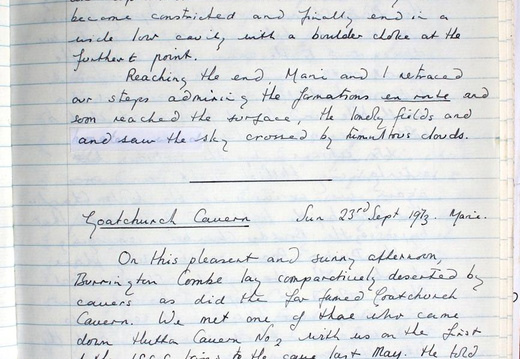 become constricted and finally end in a
wide low cavity with a boulder choke at the
furthest point.
Reaching the end, Marie and I retraced
our steps admiring the formations en route and
soon reached the surface, the lonely fields and
and saw the sky crossed by tumultous clouds.
Goatchurch Cavern Sun 23rd Sept 1973. Marie.
On this pleasant and sunny afternoon,
Burrington Combe lay comparatively deserted by
cavers as did the far famed Goatchurch
Cavern. We met one of those who came
down Hutton Cavern No 2 with us on the first
to the cave last May. He told